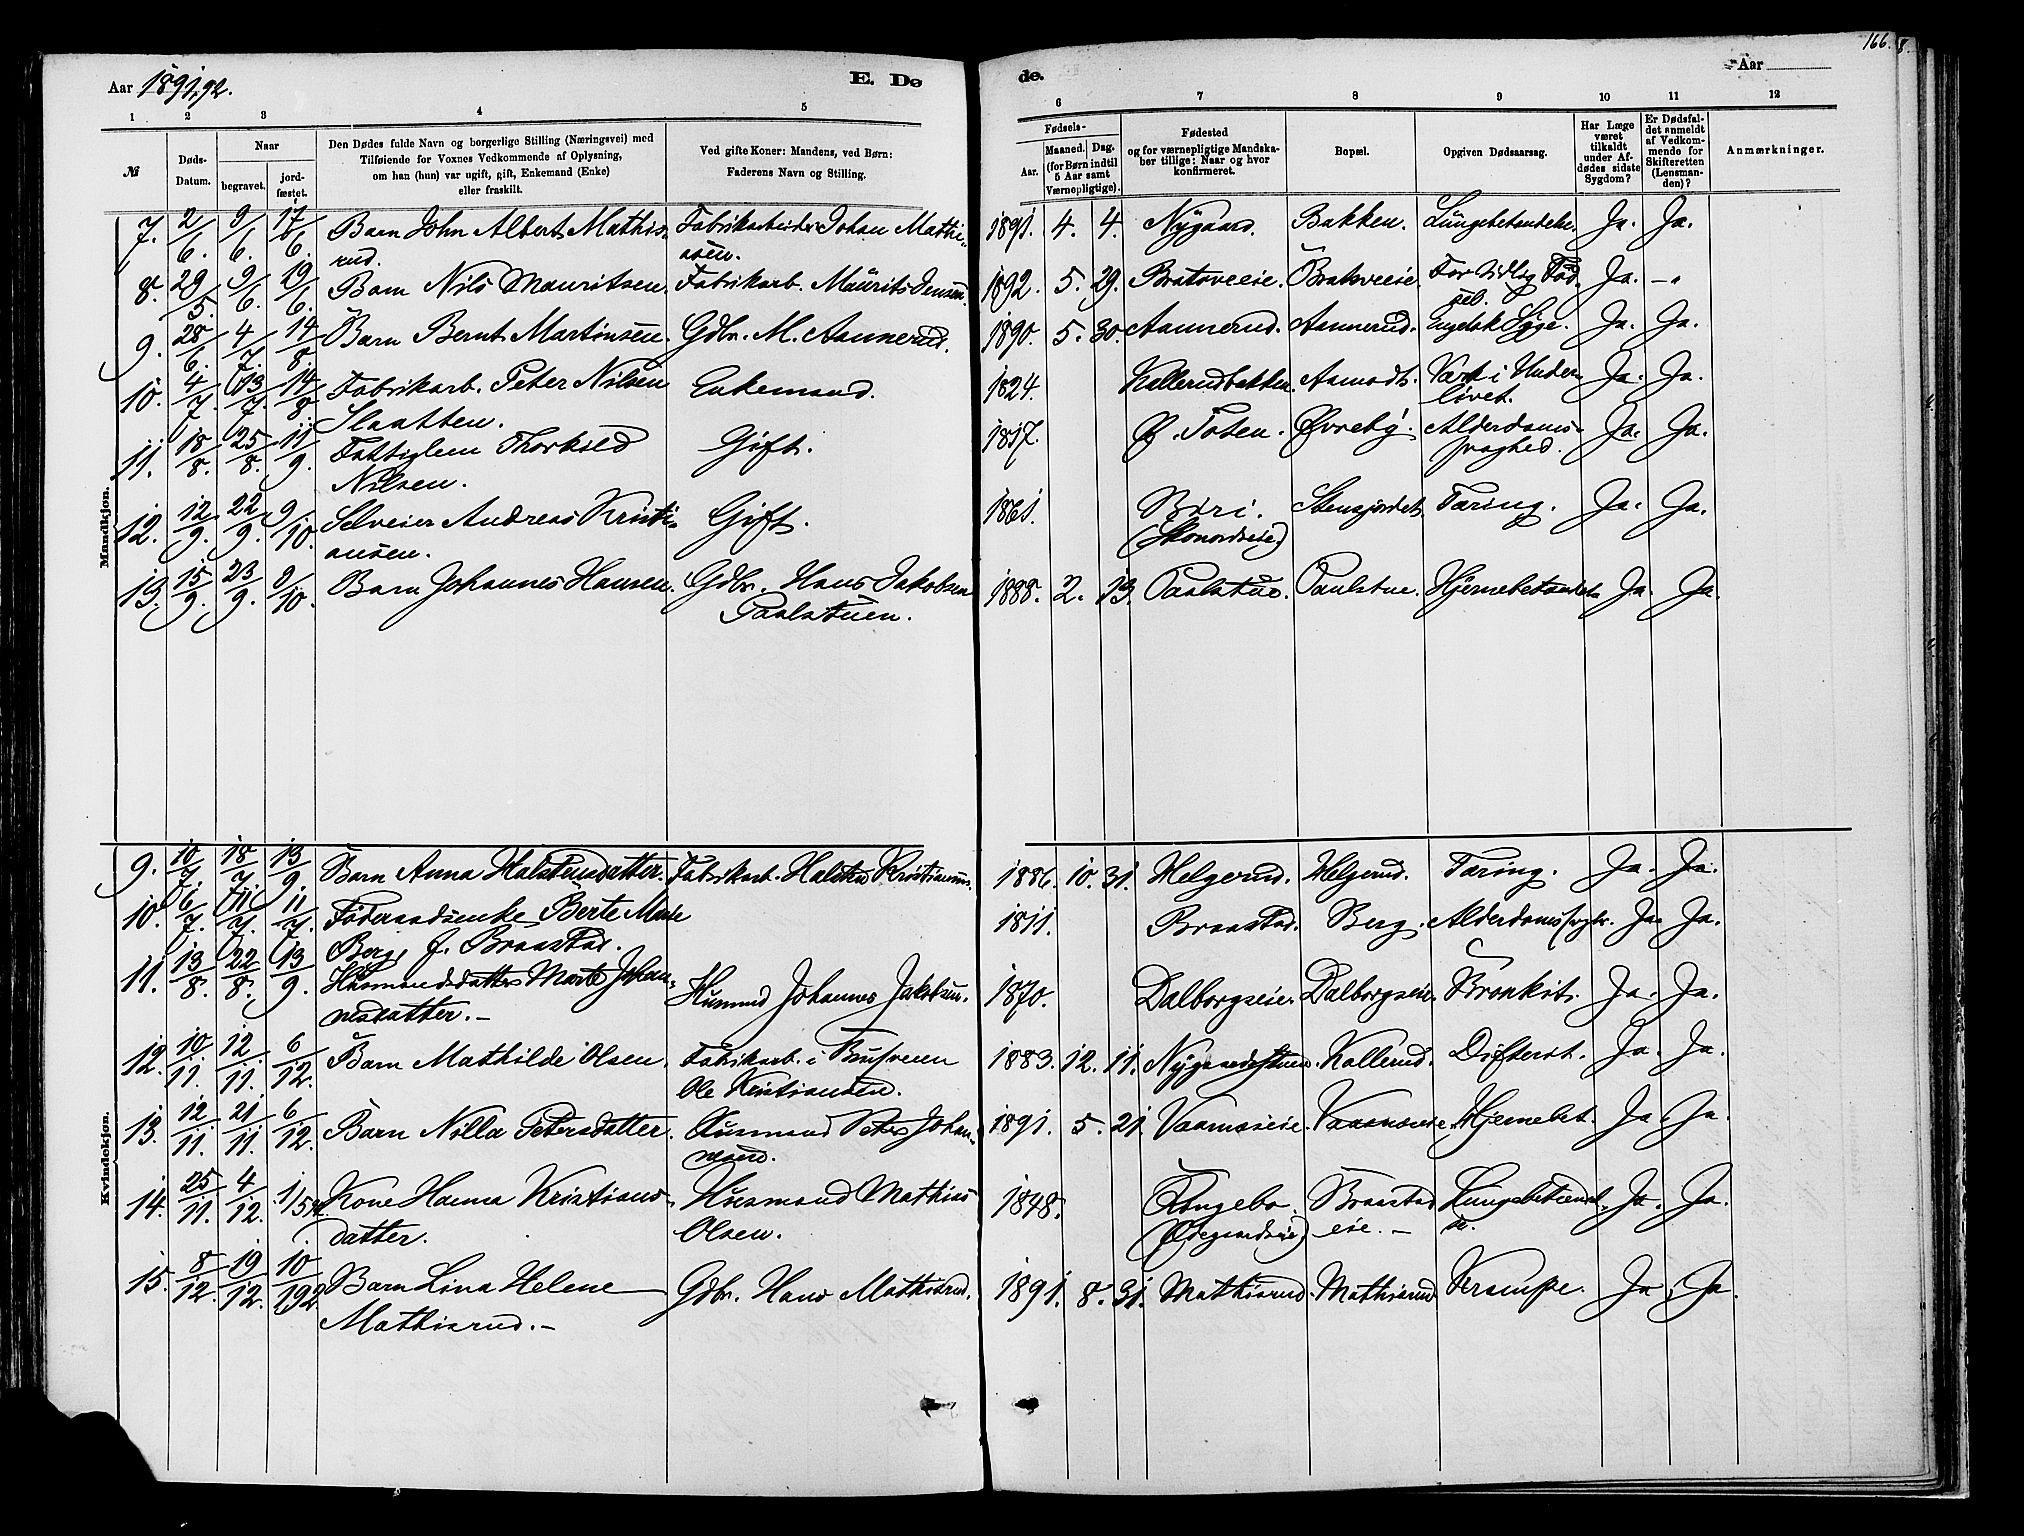 166.
Aar 1891,92.
E. Dø
de.
Aar
1 2 3 4 5 6 7 8 9 10 11 12
№
Døds-Datum.
Naar
begravet.
jord-fæstet.
Den Dødes fulde Navn og borgerlige Stilling (Næringsvei) med
Tilføiende for Voxnes Vedkommende af Oplysning,
om han (hun) var ugift, gift, Enkemand (Enke)
eller fraskilt.
Ved gifte Koner: Mandens, ved Børn:
Faderens Navn og Stilling.
Fødsels-
Aar.
Maaned. Dag.
(for Børn indtil
5 Aar samt
Værnepligtige).
Fødested
og for værnepligtige Mandska-
ber tillige: Naar og hvor
konfirmeret.
Bopæl.
Opgiven Dødsaarsag.
Har Læge
været
tilkaldt
under Af-
dødes sidste
Sygdom?
Er Dødsfal-
det anmeldt
af Vedkom-
mende for
Skifteretten
(Lensman-
den)?
Anmærkninger.
Mandkjøn.
7. 2/6. 9/6. 17/6. Barn John Albert Mathis- Fabrikarbeider Johan Mathi- 1891. 4. 4. Nygaard. Bakken. Lungebetændelse. Ja. Ja.
rud. asen.
8. 29/5. 9/6. 19/6. Barn Nils Mauritsen. Fabrikarb. Maurits Jensen. 1892. 5. 29. Bratsveeie. Bratsveeie. For tidlig Fød- Ja. —"
sel.
9. 28/6. 4/7. 14/8. Barn Bernt Martinsen. Gdbr. M. Aannerud. 1890. 5. 30. Aannerud. Aannerud. Engelsk Syge. Ja. Ja.
10. 4/7. 13/7. 14/8. Fabrikarb. Peter Nilsen Enkemand. 1824. Kallerudbakken. Aamodt. Værk i Under- Ja. Ja.
Slaatten. livet.
11. 18/8. 25/8. 11/9. Fattiglem Thorkild Gift. 1817. Ø. Toten. Øvreby. Alderdoms- Ja. Ja.
Nilsen. svaghed.
12. 12/9. 22/9. 9/10. Selveier Andreas Kristi- Gift. 1861. Biri. Stensjordet. Tæring. Ja. Ja.
ansen.
13. 15/9. 23/9. 9/10. Barn Johannes Hansen. Gdbr. Hans Jakobsen 1888. 2. 13. Paalstue. Paulstue. Hjernebetændelse Ja. Ja.
Paalstuen.
Kvindekjøn.
9. 10/7. 18/7. 13/9. Barn Anna Halstensdatter. Fabrikarb. Halsten Kristiansen. 1886. 10. 31. Helgerud. Helgerud. Tæring. Ja. Ja.
10. 6/7. 11/7. 11/7. Føderaadsenke Berte Marie 1811. Braastad. Berg. Ja. Ja.
Berg, f. Braastad.
11. 13/8. 22/8. 13/9. Husmandsdatter Marte Johan- Husmand Johannes Jakobsen. 1870. Dalborgseie. Dalborgseie. Bronkit. Ja. Ja.
nesdatter.—
12. 10/11. 12/11. 6/12. Barn Mathilde Olsen. Fabrikarb. i 1883. 12. 11. Kallerud. Difterit. Ja. Ja.
Ole Kristiansen.
13. 12/11. 21/11. 6/12. Barn Nilla Petersdatter. Husmand Peter Johan- 1891. 5. 21. Vaamaseie. Vaamaseie. Hjernebet. Ja. Ja.
nesen.
14. 25/11. 4/12. Kone Hanna Kristians- Husmand Mathias 1848. Braastad Lungebetænd. Ja. Ja.
datter. Olsen. eie.—
15. 8/12. 19/12. 10/1 92 Barn Lina Helene Gdbr. Hans Mathisrud. 1891. 8. 31. Mathisrud. Mathisrud. Krampe. Ja. Ja.
Mathisrud.—